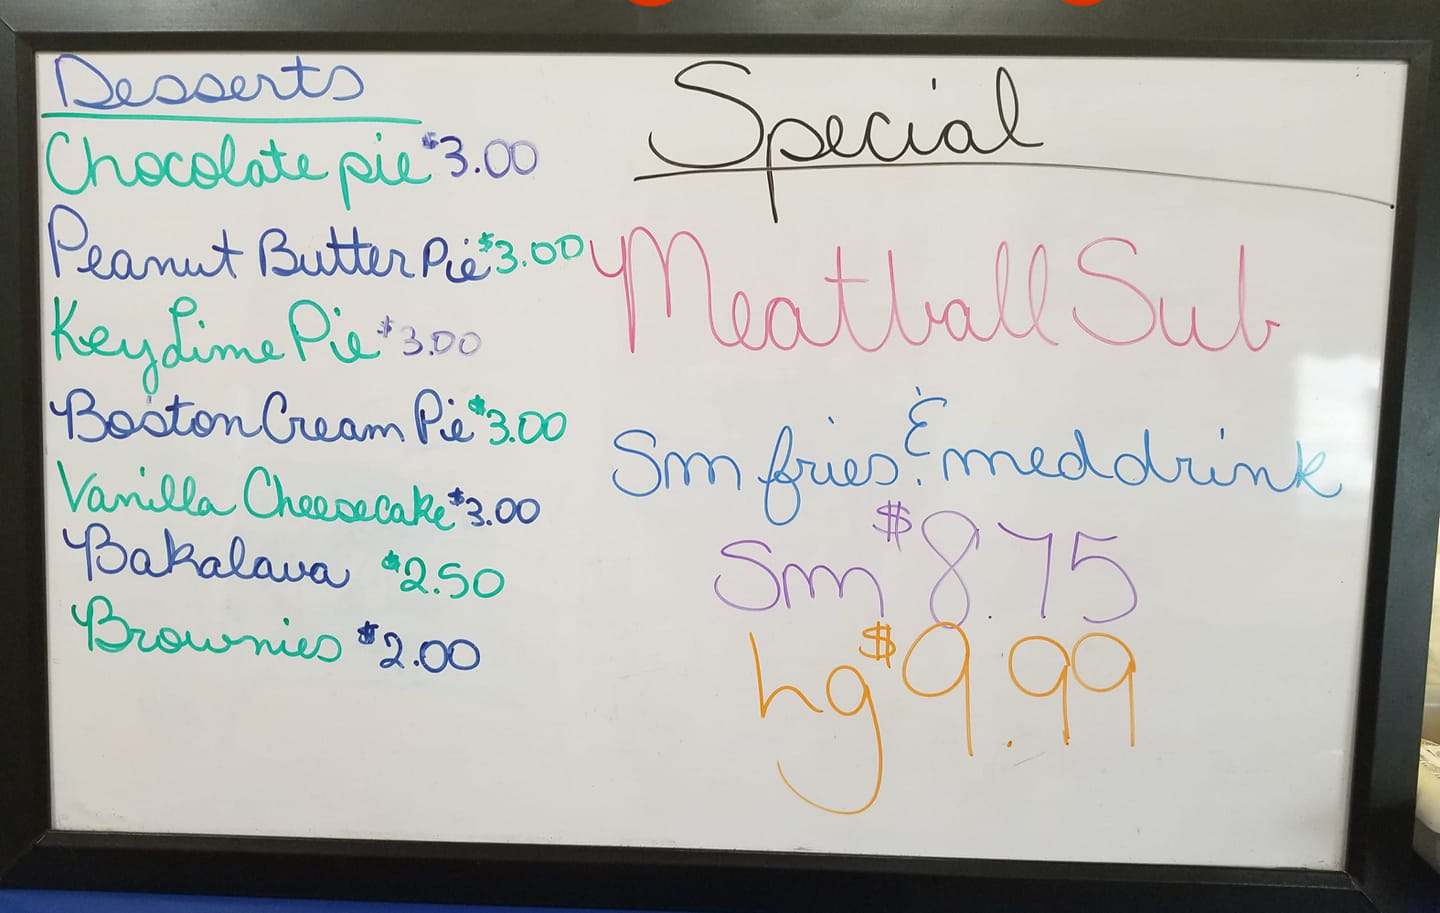 Desserts
Chocolate pie $3.00
Peanut Butter Pie $3.00
Key Lime Pie $3.00
Boston Cream Pie $3.00
Vanilla Cheesecake $3.00
Bakalava $2.50
Brownies $2.00
Special
Meatball Sub
Sm fries & med drink
Sm $8.75
hg $9.99